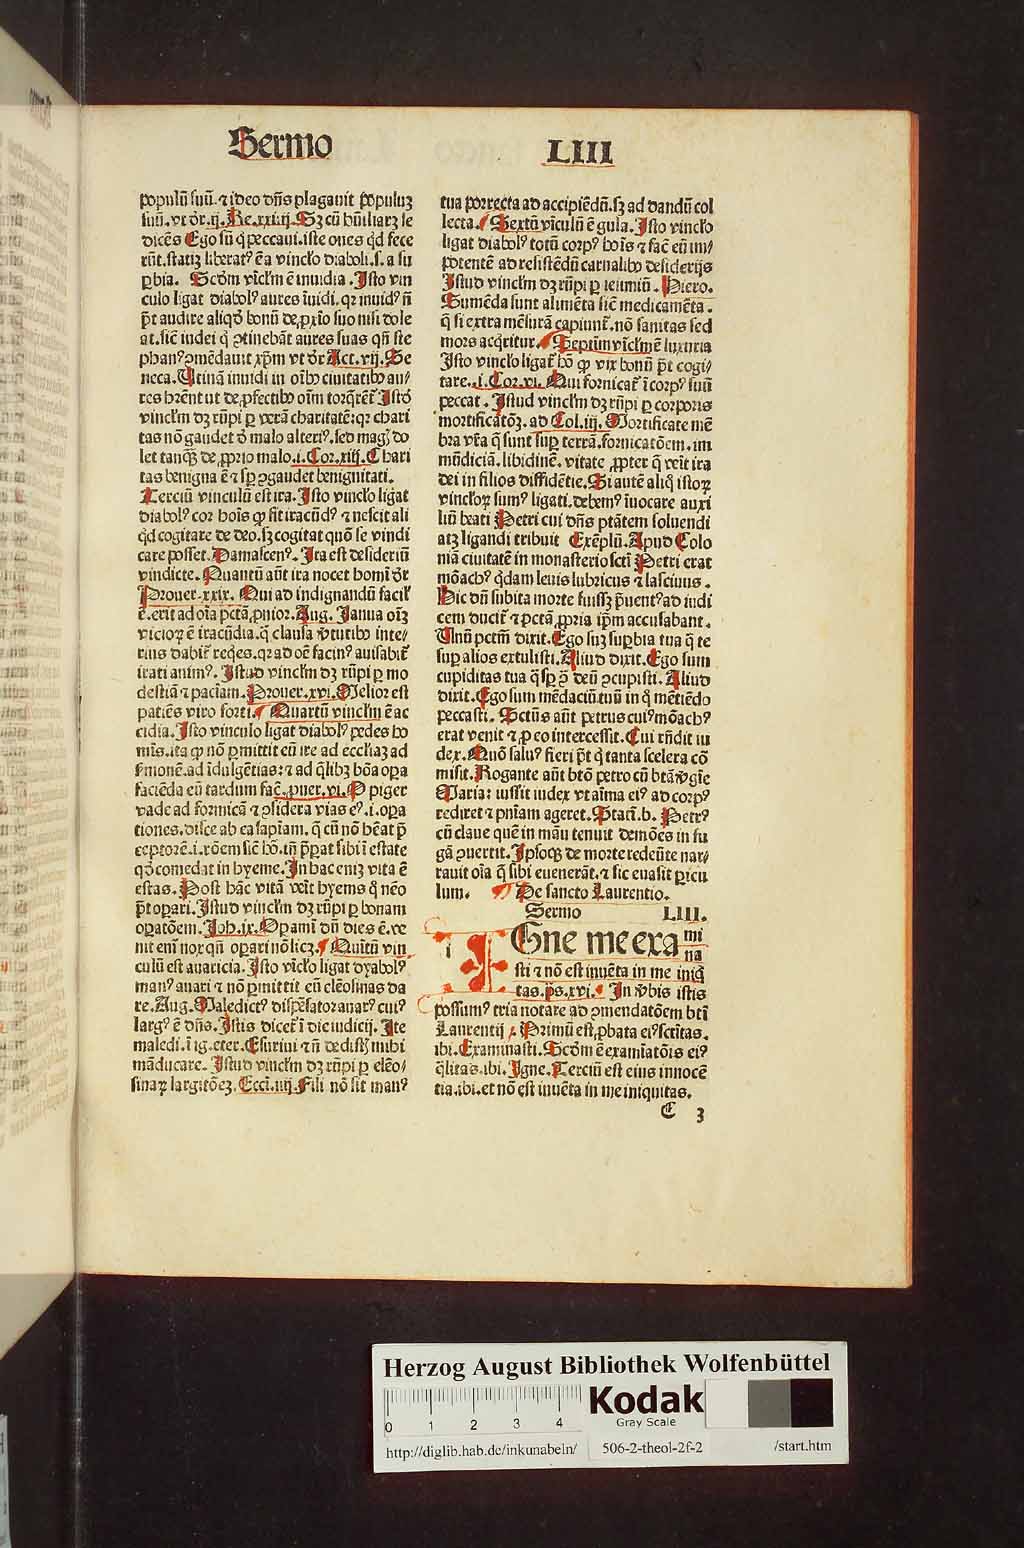 Sermo LIII
populū suū. ⁊ ideo dn̄s plagauit populuꝫ
suū. vt dr̄. ij. Re. xxiiij. Sꝫ cū hūiliarꝫ se
dicēs Ego sū q̄ peccaui. iste oues qͥd fece
rūt. statiꝫ liberatꝰ ē a vinclo diaboli. s. a su
ꝑbia. Scdm̄ vīclm̄ ē inuidia. Isto vin
culo ligat diabolꝰ aures īuidi. qꝛ inuidꝰ nō
pōt audire aliqd̄ bonū de ꝓxīo suo nisi dole
at. sic̄ iudei q̄ ꝯtinebāt aures suas qn̄ ste
phanꝰ ꝯmēdauit xp̄m vt dr̄ Act. vij. Se
neca. Utinā inuidi in oībꝰ ciuitatibꝰ au/
res hr̄ent ut de ꝓfectibꝰ oīm torqr̄ēt Istd̄
vinclm̄ dꝫ rūpi ꝑ verā charitatē: qꝛ chari
tas nō gaudet d̄ malo alteriꝰ. sed magꝭ do
let tanqꝫ de ꝓprio malo. i. Cor. xiij. Chari
tas benigna ē ⁊ sꝑ ꝯgaudet benignitati.
Terciū vinculū est ira. Isto vinclo ligat
diabolꝰ cor hoīs ꝙ sit iracūdꝰ ⁊ nescit ali
qd̄ cogitare de deo. sꝫ cogitat quō se vindi
care posset. Damascenꝰ. Ira est desideriū
vindicte. Quantū aūt ira nocet homī dr̄
Prouer. xxix. Qui ad indignandū facilꝭ
ē. erit ad oīa pctā ꝓnior. Aug. Ianua oīꝫ
vicioꝝ ē iracūdia. q̄ clausa v̄tutibꝰ inte/
rius dabit̄ reqͥes. qꝛ ad oē facinꝰ auisabit̄
irati animꝰ. Istud vinclm̄ dꝫ rūpi ꝑ mo
destiā ⁊ paciam. Prouer. xvi. Melior est
patiēs viro forti. Quartū vinclm̄ ē ac
cidia. Isto vinculo ligat diabolꝰ pedes ho
mīs. ita ꝙ nō ꝑmittit eū ire ad ecclīaꝫ ad
ẜmonē. ad īdulgētias: ⁊ ad qͥlibꝫ bōa oꝑa
faciēda eū tardum fac̄. ꝓuer. vi. O piger
vade ad formicā ⁊ ꝯsidera vias eꝰ. i. oꝑa
tiones. disce ab ea sapīam. q̄ cū nō hēat p̄
ceptorē. i. rōem sic̄ hō. tn̄ p̄ꝑat sibi ī estate
qd̄ comedat in hyeme. In hac eniꝫ vita ē
estas. Post hāc vitā veīt hyems qn̄ nēo
pōt oꝑari. Istud vinclm̄ dꝫ rūpi ꝑ bonam
oꝑatōem. Joh. ix. Oꝑamī dū dies ē. ve
nit em̄ nox qn̄ oꝑari nō licꝫ. Quītū vin
culū est auaricia. Isto vīclo ligat dyabolꝰ
manꝰ auari ⁊ nō ꝑmittit eū elēosinas da
re. Aug. Maledictꝰ dispēsator auarꝰ cuiꝰ
largꝰ ē dn̄s. Istis dicet̄ ī die iudicij. Ite
maledi. ī ig. eter. Esurini ⁊ nō dedistꝭ mihi
māducare. Istud vinclm̄ dꝫ rūpi ꝑ elēo/
sinaꝝ largitōeꝫ. Eccī. iiij. Fili nō sit manꝰ
tua porrecta ad accipiēdū. sꝫ ad dandū col
lecta. Sextū vīculū ē gula. Isto vinclo
ligat diabolꝰ totū corpꝰ hoīs ⁊ facͥ eū im/
potentē ad resistēdū carnalibꝰ desiderijs
Istud vinclm̄ dꝫ rūpi ꝑ ieiuniū. Hiero.
Sumēda sunt alimēta sic̄ medicamēta.
q̄ si extra mēsurā capiunt̄. nō sanitas sed
mors acqͥritur. Septimū vīclm̄ ē luxuria
Isto vinclo ligat̄ hō ꝙ vix bonū pōt cogi/
tare. i. Cor. vi. Qui fornicat̄ ī corpꝰ suū
peccat. Istud vinclm̄ dꝫ rūpi ꝑ corporis
mortificatōꝫ. ad Col. iij. Mortificate mē
bra vr̄a q̄ sunt suꝑ terrā. fornicatōem. im
mūdiciā. libidinē. vitate ꝓpter q̄ veīt ira
dei in filios diffidētie. Si autē aliqͥ istoꝝ
vincloꝝ sumꝰ ligati. debemꝰ īuocare auxi
liū beati Petri cui dn̄s ptātem soluendi
atꝫ ligandi tribuit Exēplū. Apud Colo
niā ciuitatē in monasterio scti Petri erat
mōachꝰ qͥdam leuis lubricus ⁊ lasciuus.
Hic dū subita morte fuissꝫ p̄uentꝰ ad iudi
cem ducit̄ ⁊ pctā ꝓpria ip̄m accusabant.
Unū pctm̄ dixit. Ego suꝫ suꝑbia tua q̄ te
suꝑ alios extulisti. Aliud dixit. Ego sum
cupiditas tua q̄ sꝑ ꝯ deū ꝯcupisti. Aliud
dixit. Ego sum mēdaciū tuū in qͦ mētiēdo
peccasti. Sctūs aūt petrus cuiꝰ mōachꝰ
erat venit ⁊ ꝓ eo intercessit. Cui rn̄dit iu
dex. Quō saluꝰ fieri pōt qͥ tanta scelera cō
misit. Rogante aūt btō petro cū btā v̄gīe
Maria: iussit iudex vt aīma eiꝰ ad corpꝰ
rediret ⁊ pn̄iam ageret. Stati. b. Petrꝰ
cū claue quē in māu tenuit demōes in fu
gā ꝯuertit. Ipsoqꝫ de morte redeūte nar/
rauit oīa q̄ sibi euenerāt. ⁊ sic euasit ꝑicu
lum. De sancto Laurentio.
Sermo LIII.
i IGne me exa mi
na
sti ⁊ nō est inuēta in me iniqͥ
tas. ps. xvi. In v̄bis istis
possumꝰ tria notare ad ꝯmendatōem btī
Laurentij. Primū est ꝓbata eiꝰ sctītas.
ibi. Examinasti. Scdm̄ ē examīatōis eiꝰ
qͥlitas. ibi. Igne. Terciū est eius innocē
tia. ibi. et nō est inuēta in me iniquitas.
C 3
Herzog August Bibliothek Wolfenbüttel
0 1 2 3 4
Kodak
Gray Scale
http://diglib.hab.de/inkunabeln/ 506-2-theol-2f-2 /start.htm